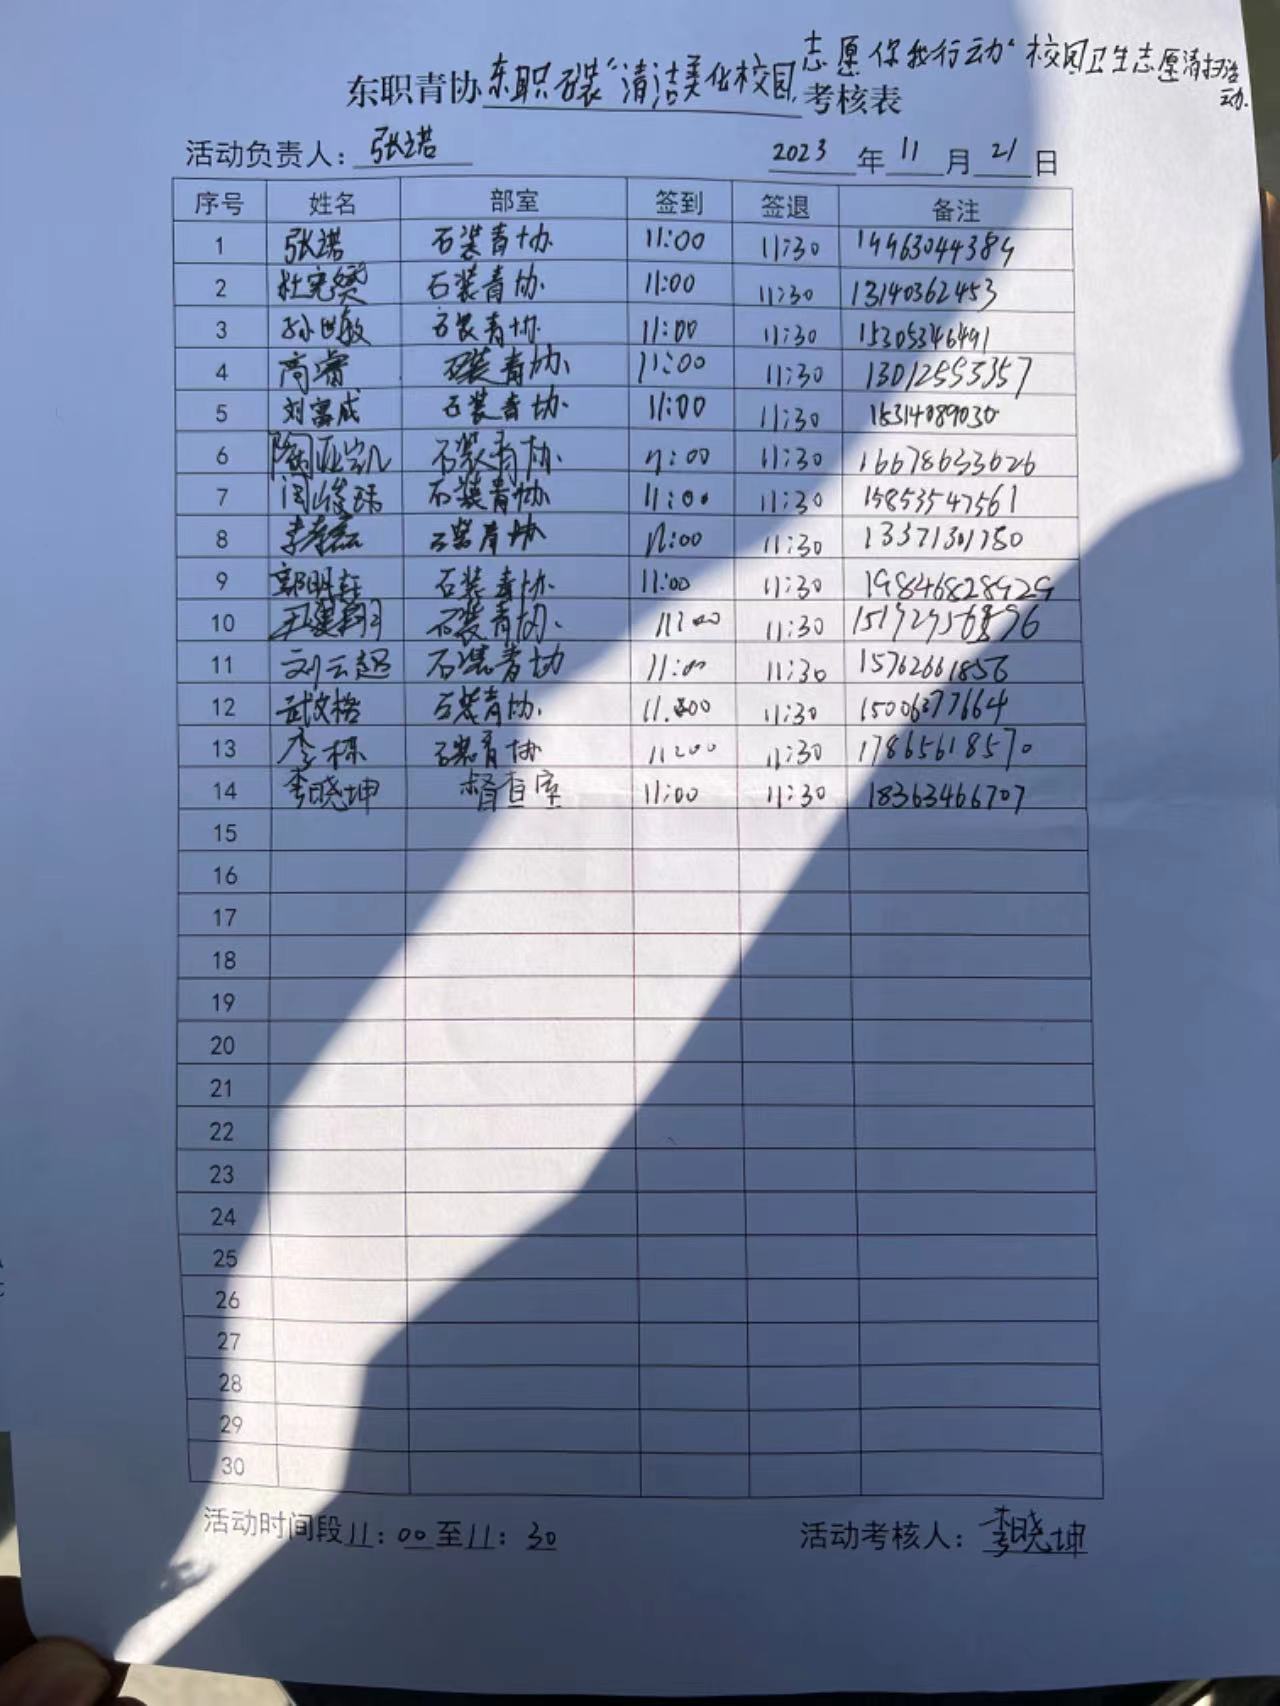 东职青协东职石装“清洁美化校园,志愿你我行动”校园卫生志愿清扫活动考核表
活动负责人：张诺 2023年11月21日
序号 姓名 部室 签到 签退 备注
1 张诺 石装青协 11:00 11:30 19963044389
2 石装青协 11:00 11:30 13140362453
3 孙世敏 石装青协 11:00 11:30 15305346491
4 高睿 石装青协 11:00 11:30 13012553357
5 刘富成 石装青协 11:00 11:30 15314089030
6 陶亚凯 石装青协 11:00 11:30 16678633626
7 闫峻玮 石装青协 11:00 11:30 15853547561
8 李孝磊 石装青协 11:00 11:30 13371301750
9 郭明轩 石装青协 11:00 11:30 19846828929
10 石装青协 11:00 11:30
11 刘云超 石装青协 11:00 11:30 15762661856
12 武文格 石装青协 11:00 11:30 15006377664
13 李栋 石装青协 11:00 11:30 17865618570
14 李晓坤 督查室 11:00 11:30 18363466707
15
16
17
18
19
20
21
22
23
24
25
26
27
28
29
30
活动时间段11：00至11：30 活动考核人：李晓坤